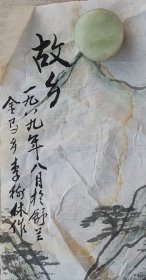 故乡
一九八九年八月於舒兰
金马乡李树林作